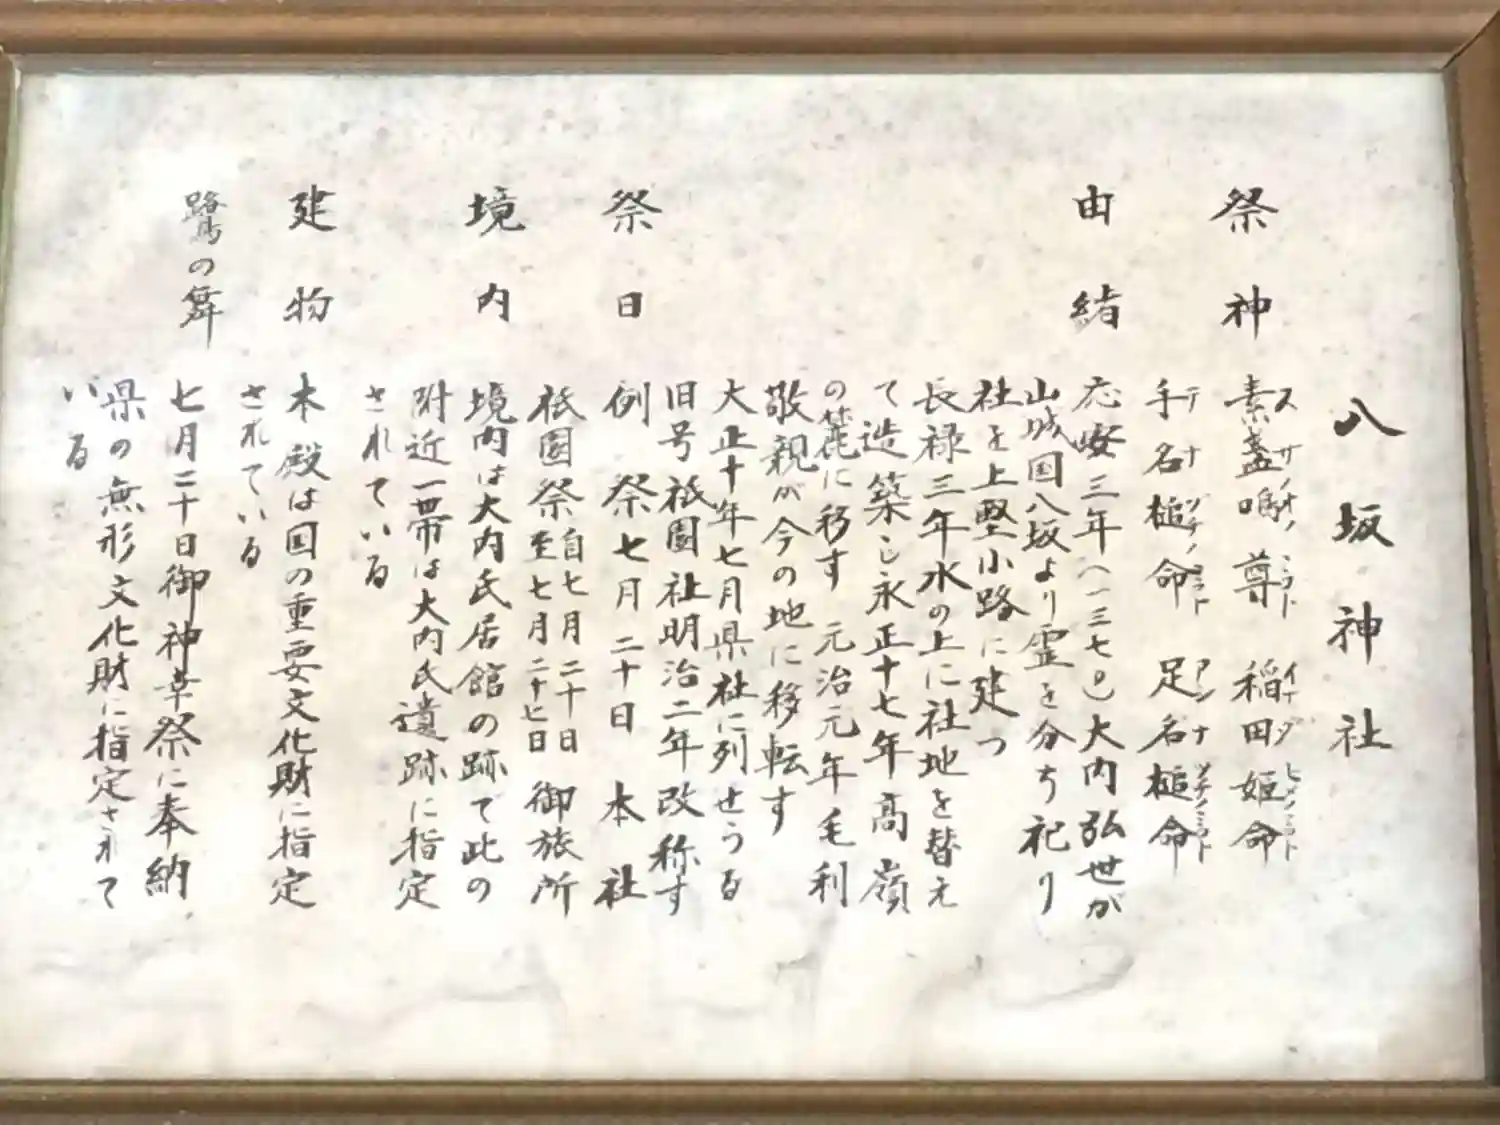 八坂神社
祭神 素盞鳴尊 稲田姫命
スサノオノミコト イナダヒメノミコト
手名槌命 足名槌命
テナヅチノミコト アシナヅチノミコト
由緒 応安三年(一三七〇)大内弘世が
山城国八坂より霊を分ち祀り
社を上竪小路に建つ
長禄三年水の上に社地を替え
て造築し永正十七年高嶺
の麓に移す 元治元年毛利
敬親が今の地に移転す
大正十年七月県社に列せらる
旧号祇園社明治二年改称す
祭日 例祭七月二十日 本社
祇園祭 自七月二十日 至七月二十七日 御旅所
境内 境内は大内氏居館の跡で此の
附近一帯は大内氏遺跡に指定
されている
建物 本殿は国の重要文化財に指定
されている
鷺の舞 七月二十日御神幸祭に奉納
県の無形文化財に指定されて
いる